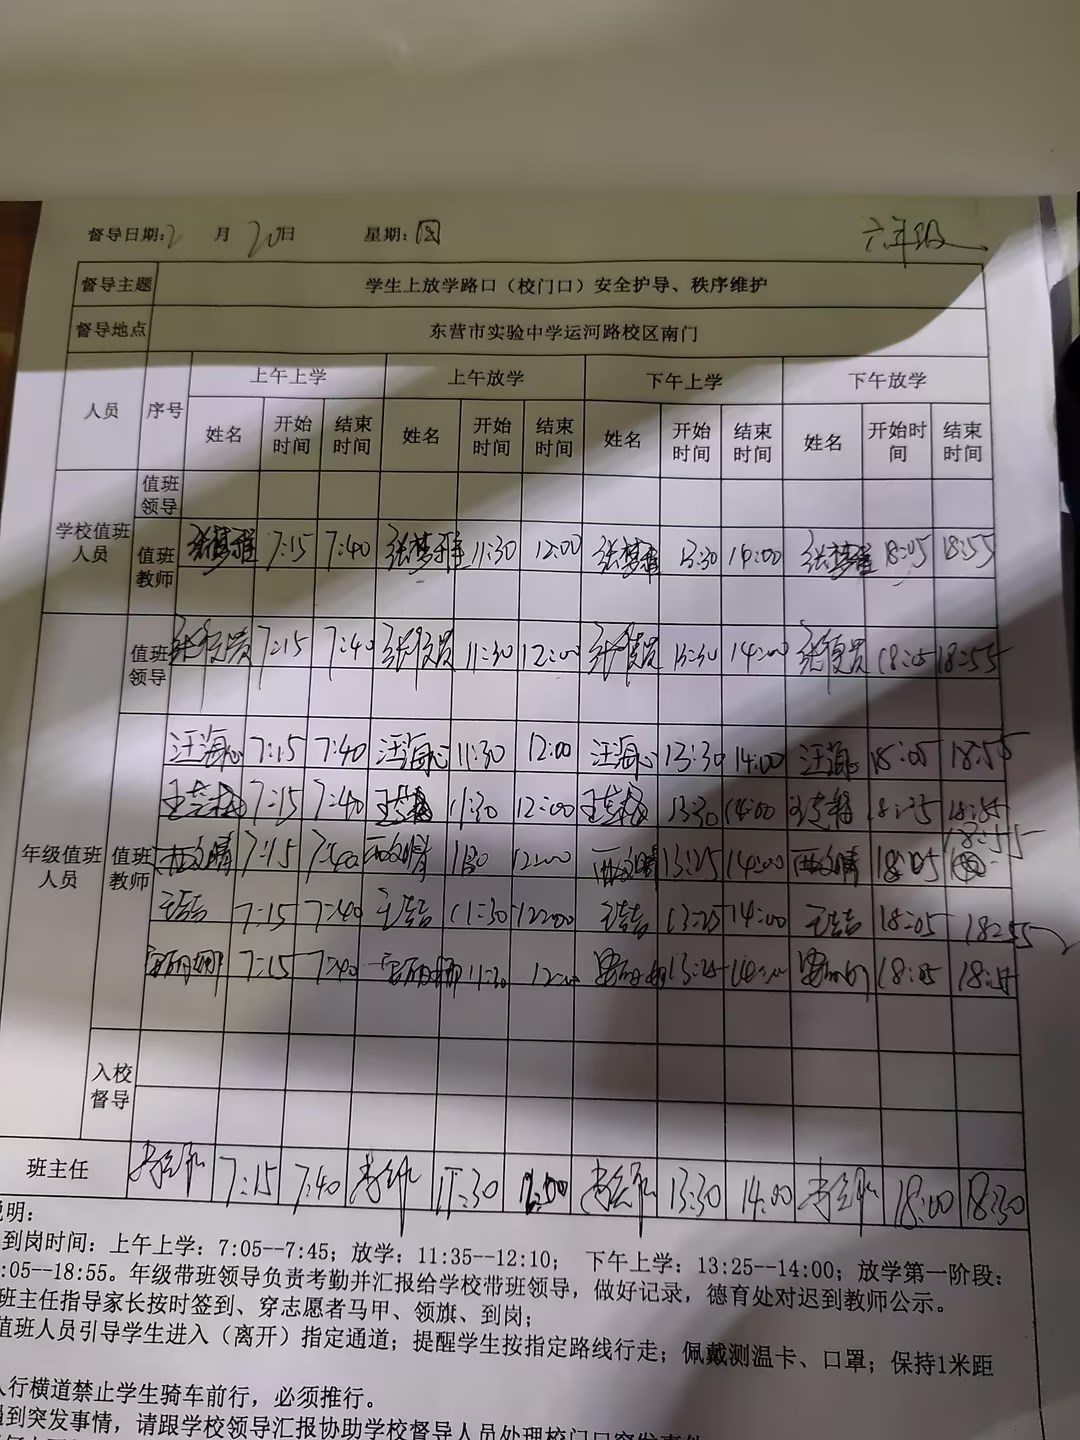 督导日期:2 月 20日 星期:四 六年级
督导主题 学生上放学路口（校门口）安全护导、秩序维护
督导地点 东营市实验中学运河路校区南门
人员 序号 上午上学 上午放学 下午上学 下午放学
姓名 开始时间 结束时间 姓名 开始时间 结束时间 姓名 开始时间 结束时间 姓名 开始时间 结束时间
学校值班人员 值班领导
值班教师 张梦雅 7:15 7:40 张梦雅 11:30 12:00 张梦雅 13:30 14:00 张梦雅 18:05 18:55
年级值班人员 值班领导 7:15 7:40 11:30 12:00 13:30 14:00 18:05 18:55
值班教师 汪海心 7:15 7:40 汪海心 11:30 12:00 汪海心 13:30 14:00 汪海心 18:05 18:55
7:15 7:40 11:30 12:00 13:30 14:00
7:15 7:40 12:00 13:25 14:00 18:05 18:55
7:15 7:40 11:30 14:00 18:05 18:55
7:15 7:40 11:30 18:05
入校督导
班主任 7:15 7:40 11:30 13:30 14:00 18:00 18:30
说明:
到岗时间：上午上学：7:05--7:45；放学：11:35--12:10； 下午上学：13:25--14:00；放学第一阶段：
:05--18:55。年级带班领导负责考勤并汇报给学校带班领导，做好记录，德育处对迟到教师公示。
班主任指导家长按时签到、穿志愿者马甲、领旗、到岗；
值班人员引导学生进入（离开）指定通道；提醒学生按指定路线行走；佩戴测温卡、口罩；保持1米距
人行横道禁止学生骑车前行，必须推行。
遇到突发事情，请跟学校领导汇报协助学校督导人员处理校门口突发事件